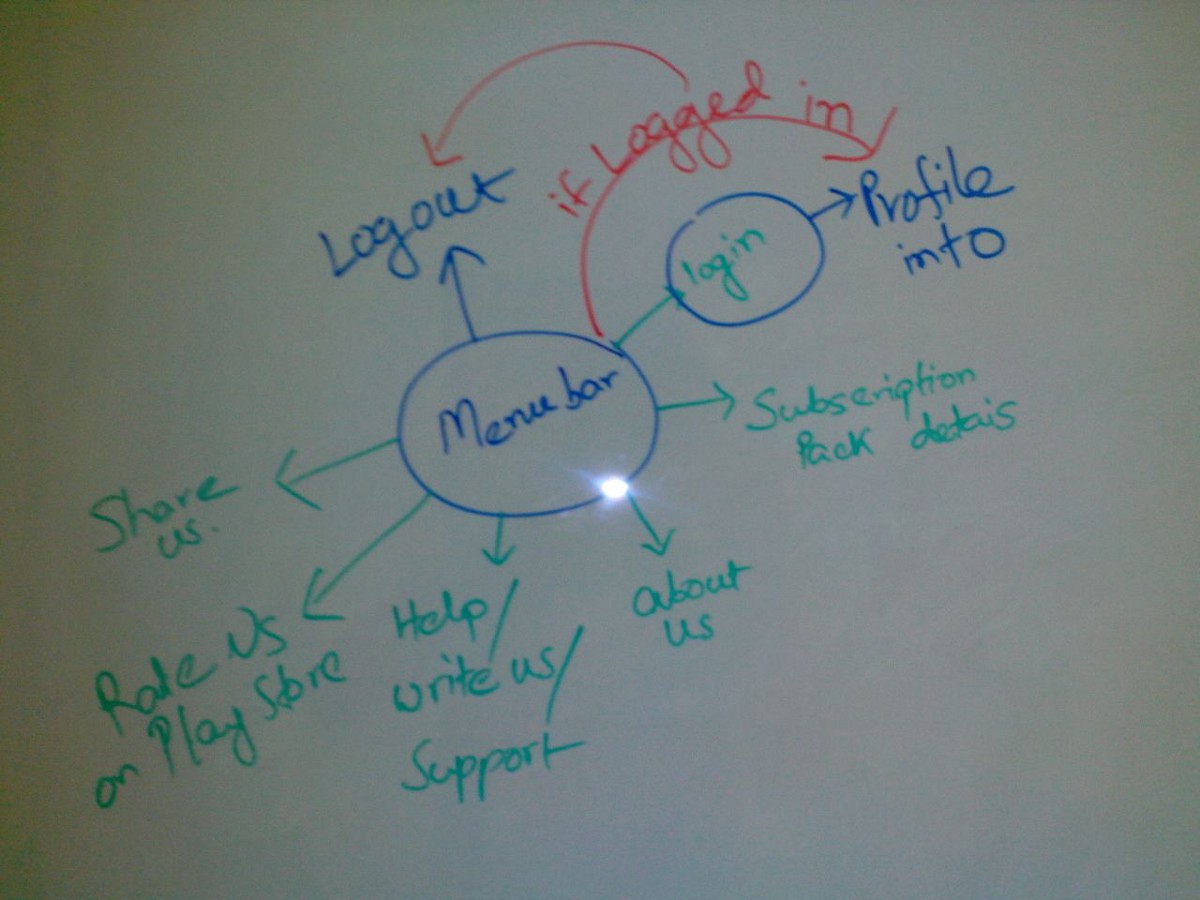 if Logged in
Logout
login
Profile
into
Menubar
Subscription
Pack detais
Share
us.
Rate Us
on Play Store
Help/
write us/
Support
about
us